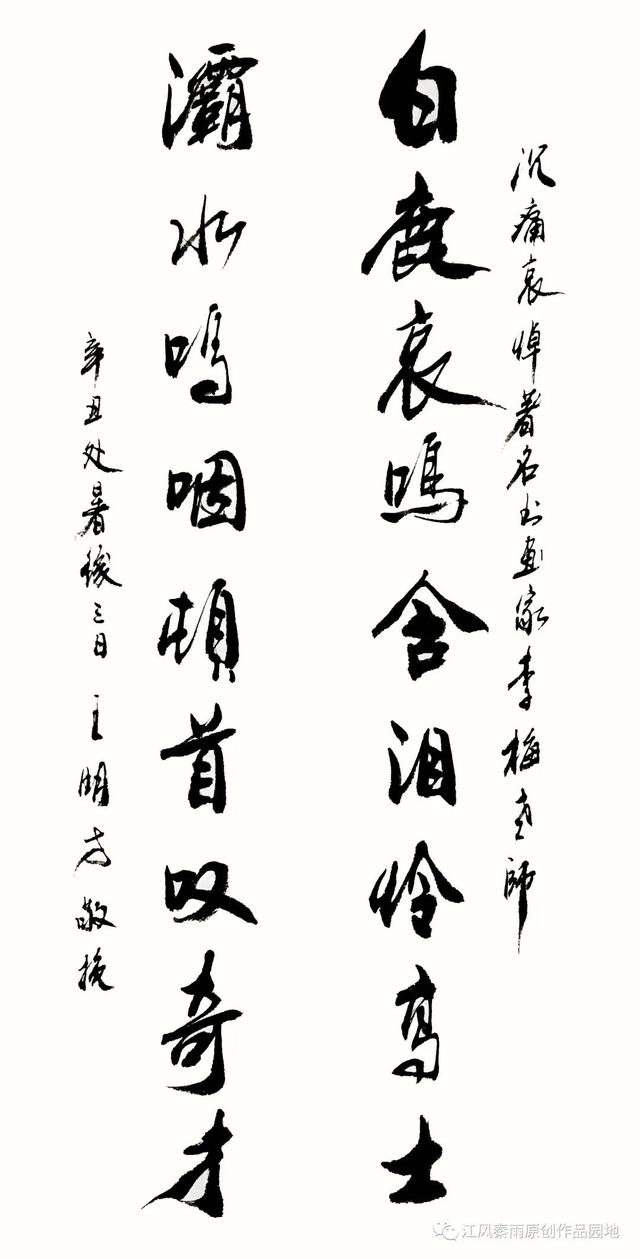 沉痛哀悼著名书画家李梅老师
白鹿哀鸣含泪怜高士
灞水呜咽顿首叹奇才
辛丑处暑後三日王明方敬挽
江风秦雨原创作品园地